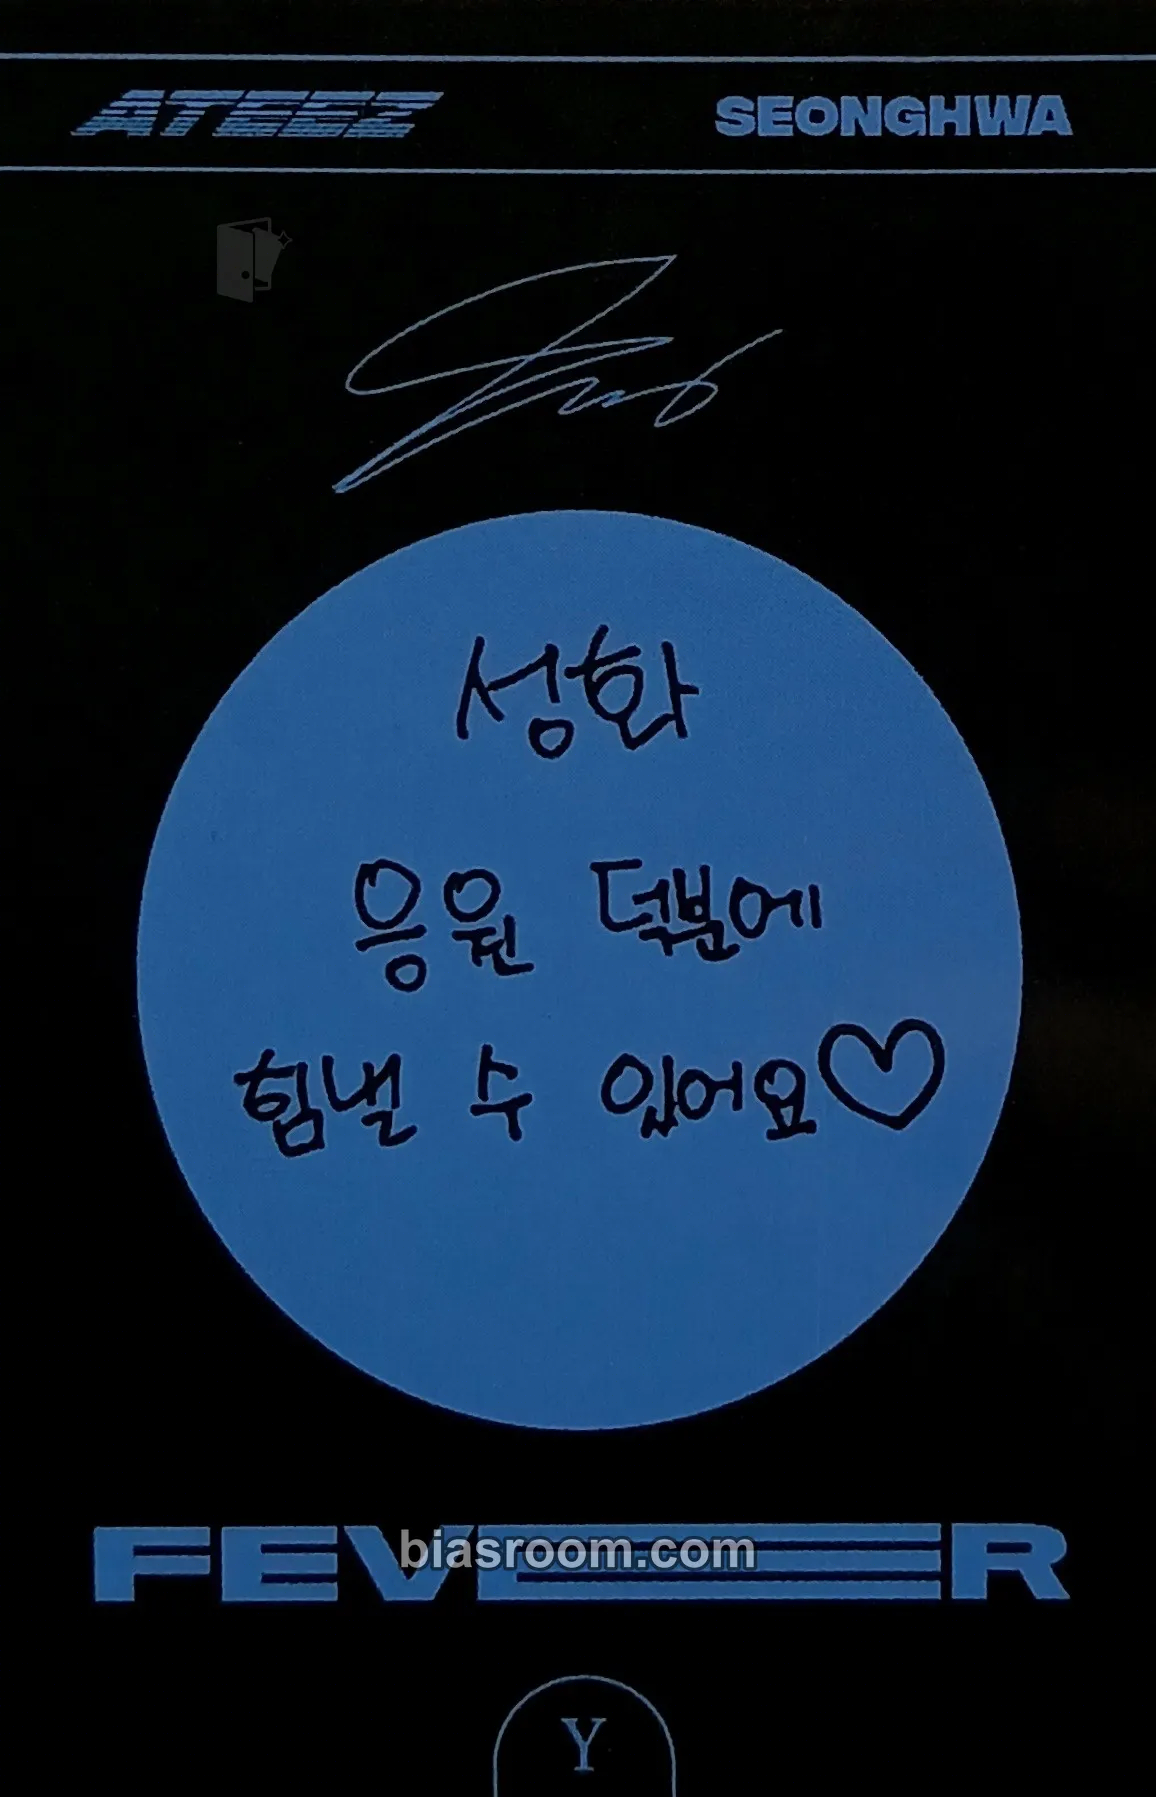 ATEEZ SEONGHWA
성화
응원 덕분에
힘낼 수 있어요♡
FEVER
biasroom.com
Y